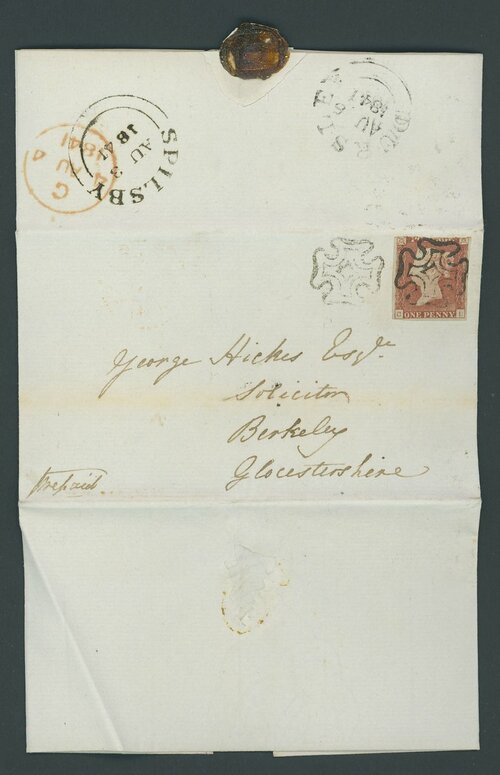 DURSLEY
AU 5
1841
SPILSBY
AU 3
1841
G
4 AU 4
1841
ONE PENNY
George Hickes Esqr.
Solicitor
Berkeley
Glocestershire
Prepaid